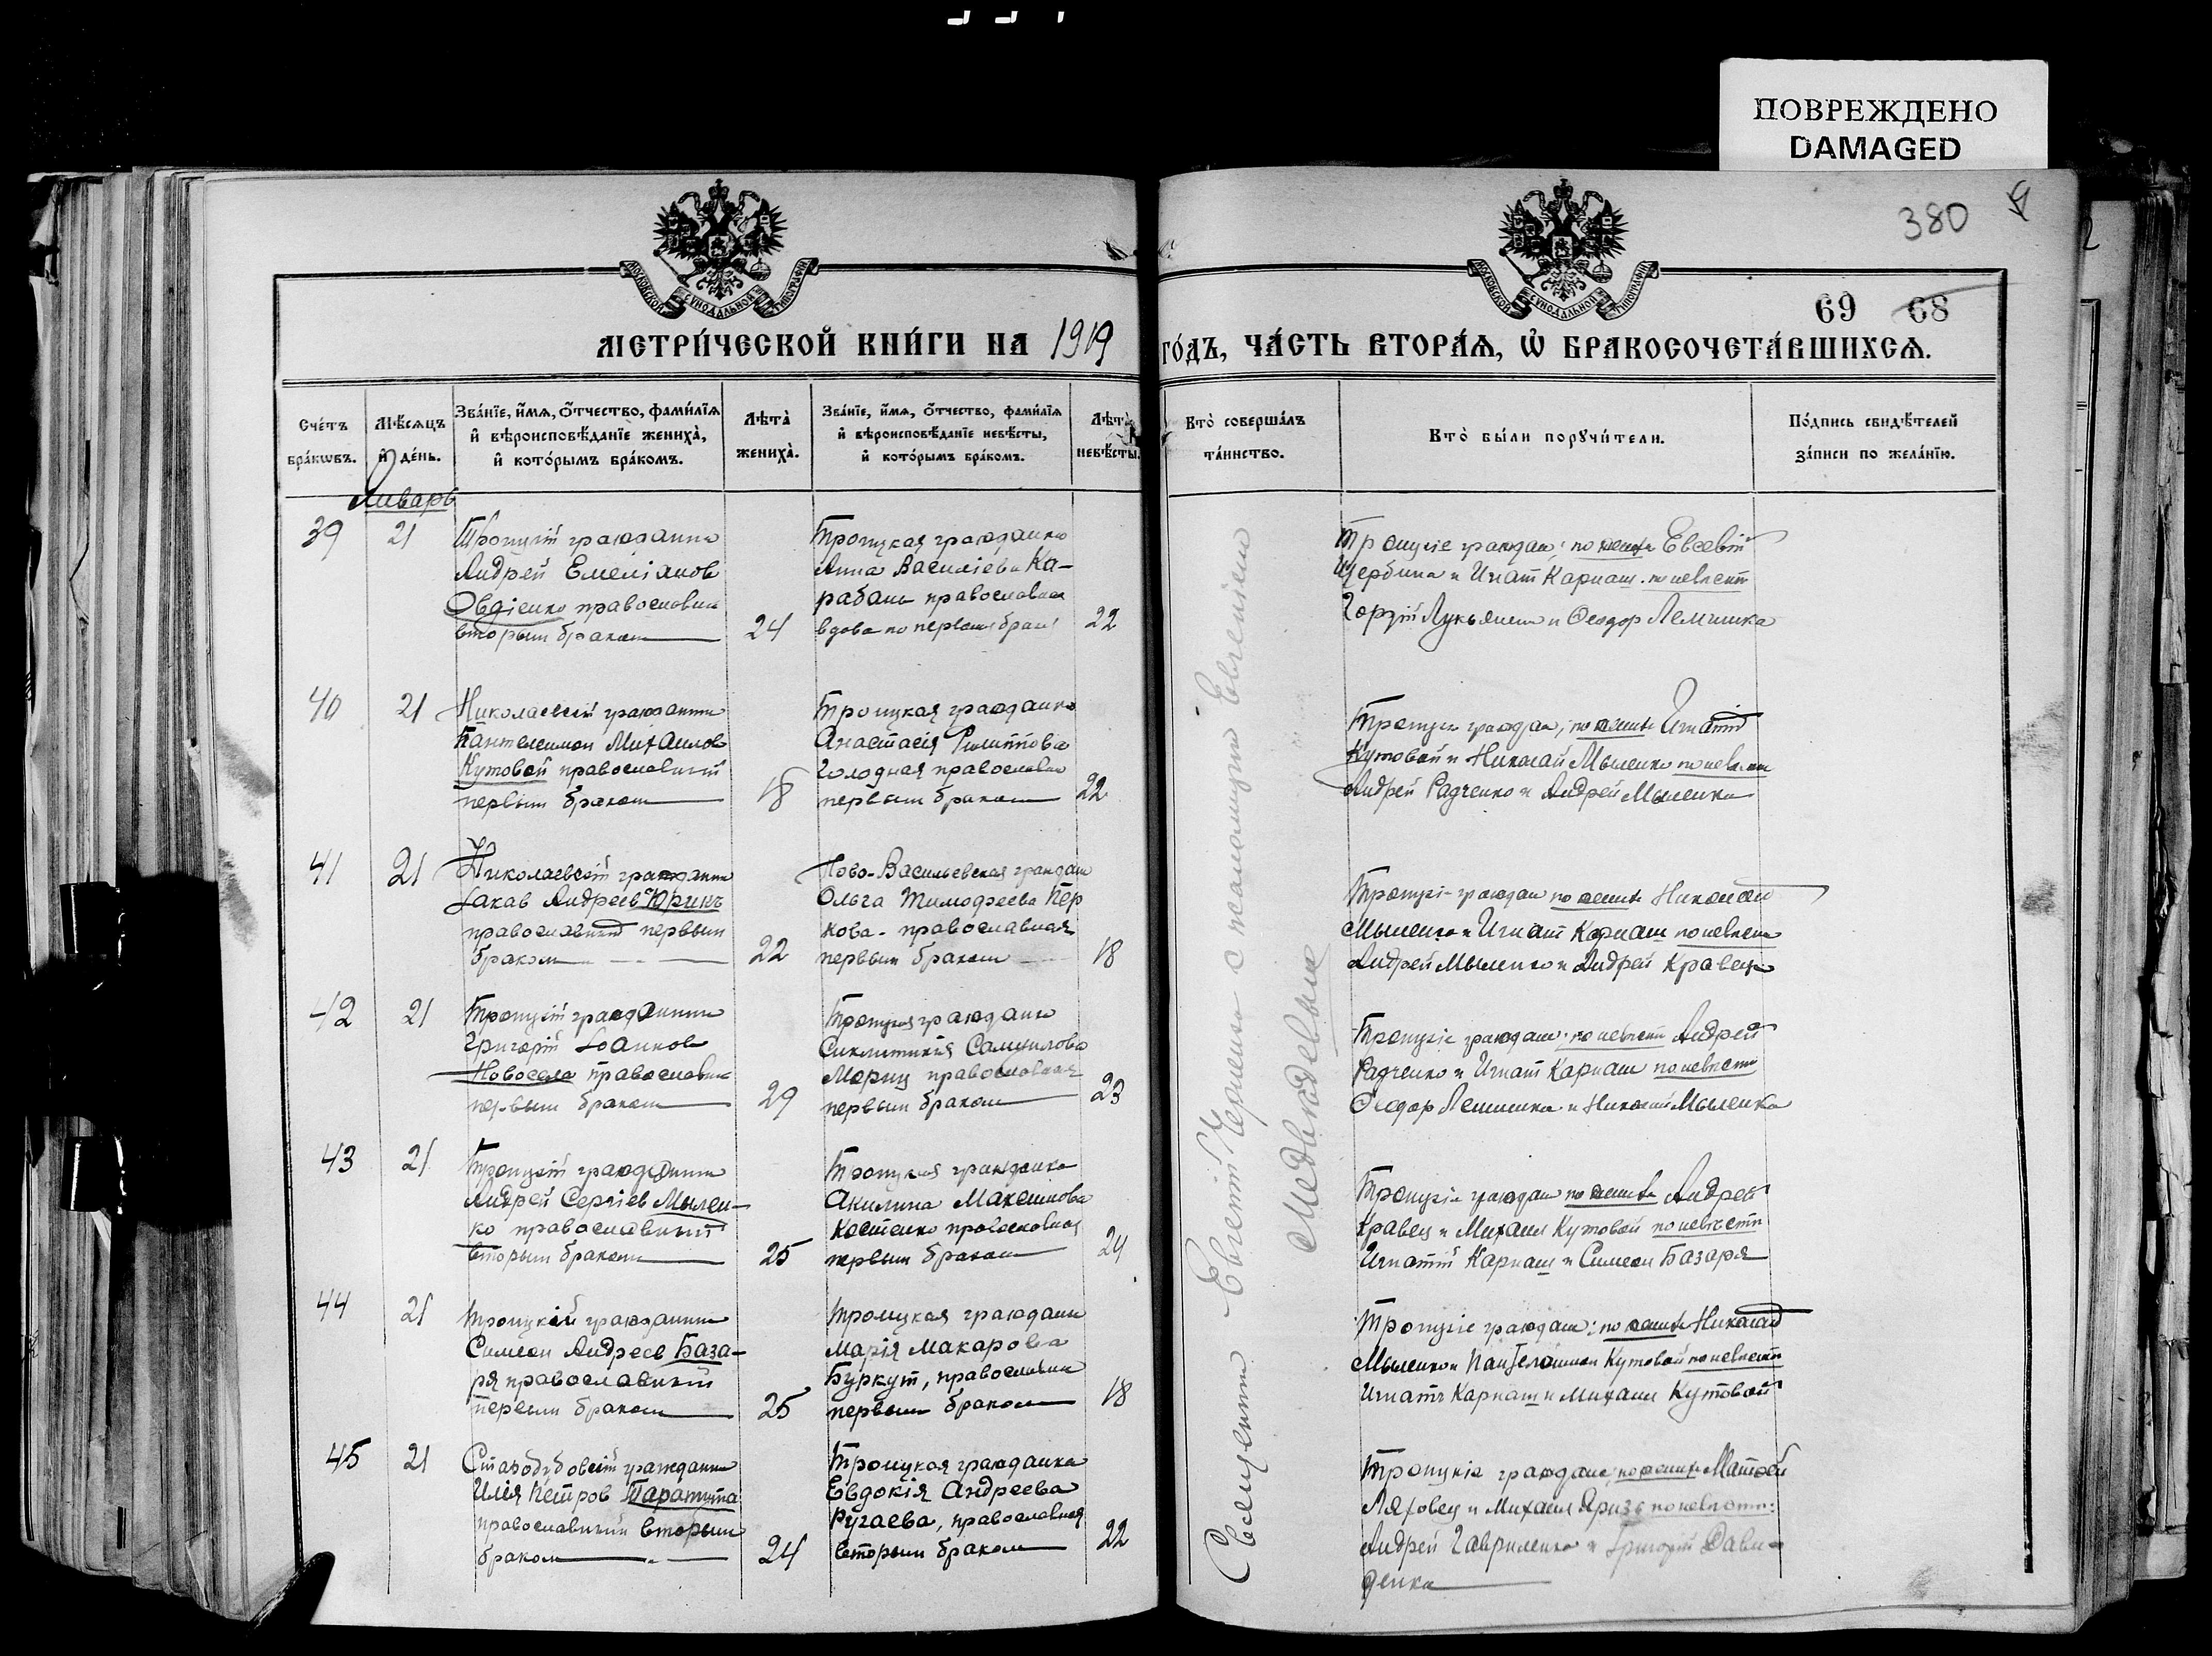 ПОВРЕЖДЕНО
DAMAGED
380
69 68
МОСКОВСКОЙ СѴНОДАЛЬНОЙ ТИПОГРАФІИ
МОСКОВСКОЙ СѴНОДАЛЬНОЙ ТИПОГРАФІИ
МЕТРИ́ЧЕСКОЙ КНИ́ГИ НА 1919 ГО́ДЪ, ЧА́СТЬ ВТОРА́Ѧ, Ѽ БРАКОСОЧЕТА́ВШИХСѦ.
Сче́тъ бра́кѡвъ.
Мѣ́сѧцъ и҆ де́нь.
Зва́нїе, и҆́мѧ, ѻ҆́тчество, фами́лїѧ
и҆ вѣроисповѣ́данїе жениха̀,
и҆ кото́рымъ бра́комъ.
Лѣта̀ жениха̀.
Зва́нїе, и҆́мѧ, ѻ҆́тчество, фами́лїѧ
и҆ вѣроисповѣ́данїе невѣ́сты,
и҆ кото́рымъ бра́комъ.
Лѣта̀ невѣ́сты.
Кто̀ соверша́лъ та́инство.
Кто̀ бы́ли порꙋчи́тели.
По́дпись свидѣ́телей
за́писи по жела́нїю.
Январь
39 21
Троицкій гражданин
Андрей Емеліанов
Овдіенко православный
вторым браком 24
Троицкая гражданка
Анна Василіева Ка-
рабань православная
вдова по первом браке 22
Троицкіе граждане: по жениху Евсевій
Щербина и Игнат Карнаш. по невесте
Лукьянен и Феодор Лемишка
40 21
Николаевскій гражданин
Пантелеимон Михаилов
Кутовой православный
первым браком 18
Троицкая гражданка
Анастасія Филиппова
Голодная православная
первым браком 22
Троицкіе граждане, по жениху Игнатій
Кутовой и Николай Мыленко по невесте
Андрей Радченко и Андрей Мыленко
41 21
Николаевскій гражданин
Іаков Андреев Юринъ
православный первым
браком 22
Ново-Васильевская граждан
Ольга Тимофеева Пер
кова - православная
первым браком 18
Троицкіе граждане по жениху Николай
Мыленко и Игнат Карнаш по невесте
Андрей Мыленко и Андрей Кравец
42 21
Троицкій гражданин
Григорій Іоаннов
Новосела православный
первым браком 29
Троицкая гражданка
Синклитикія Самуилова
Мориц православная
первым браком 23
Троицкіе граждане: по невесте Андрей
Радченко и Игнат Карнаш по невесте
Феодор Лемишка и Николай Мыленко
43 21
Троицкій гражданин
Андрей Сергіев Мылен-
ко православный
вторым браком 25
Троицкая гражданка
Акилина Максимова
Костенко православная
первым браком 24
Троицкіе граждане по жениху Андрей
Кравец и Михаил Кутовой по невесте
Игнатій Карнаш и Симеон Базаря
44 21
Троицкій гражданин
Симеон Андреев База-
ря православный
первым браком 25
Троицкая граждан
Марія Макарова
Буркут, православная
первым браком 18
Троицкіе граждане: по жениху Николай
Мыленко и Пантелеимон Кутовой по невесте
Игнатъ Карнаш и Михаил Кутовой
45 21
Стародубовскій гражданин
Илія Петров Таратута
православный вторым
браком 24
Троицкая гражданка
Евдокія Андреева
Ругаева, православная
вторым браком 22
Троицкіе граждане, по жениху Матвей
Ляховец и Михаил по невесте:
Андрей Гавриленко и Григорій Дави-
денко
Священник Евгеній Черненко с псаломщик Евгеніем
Медведевым